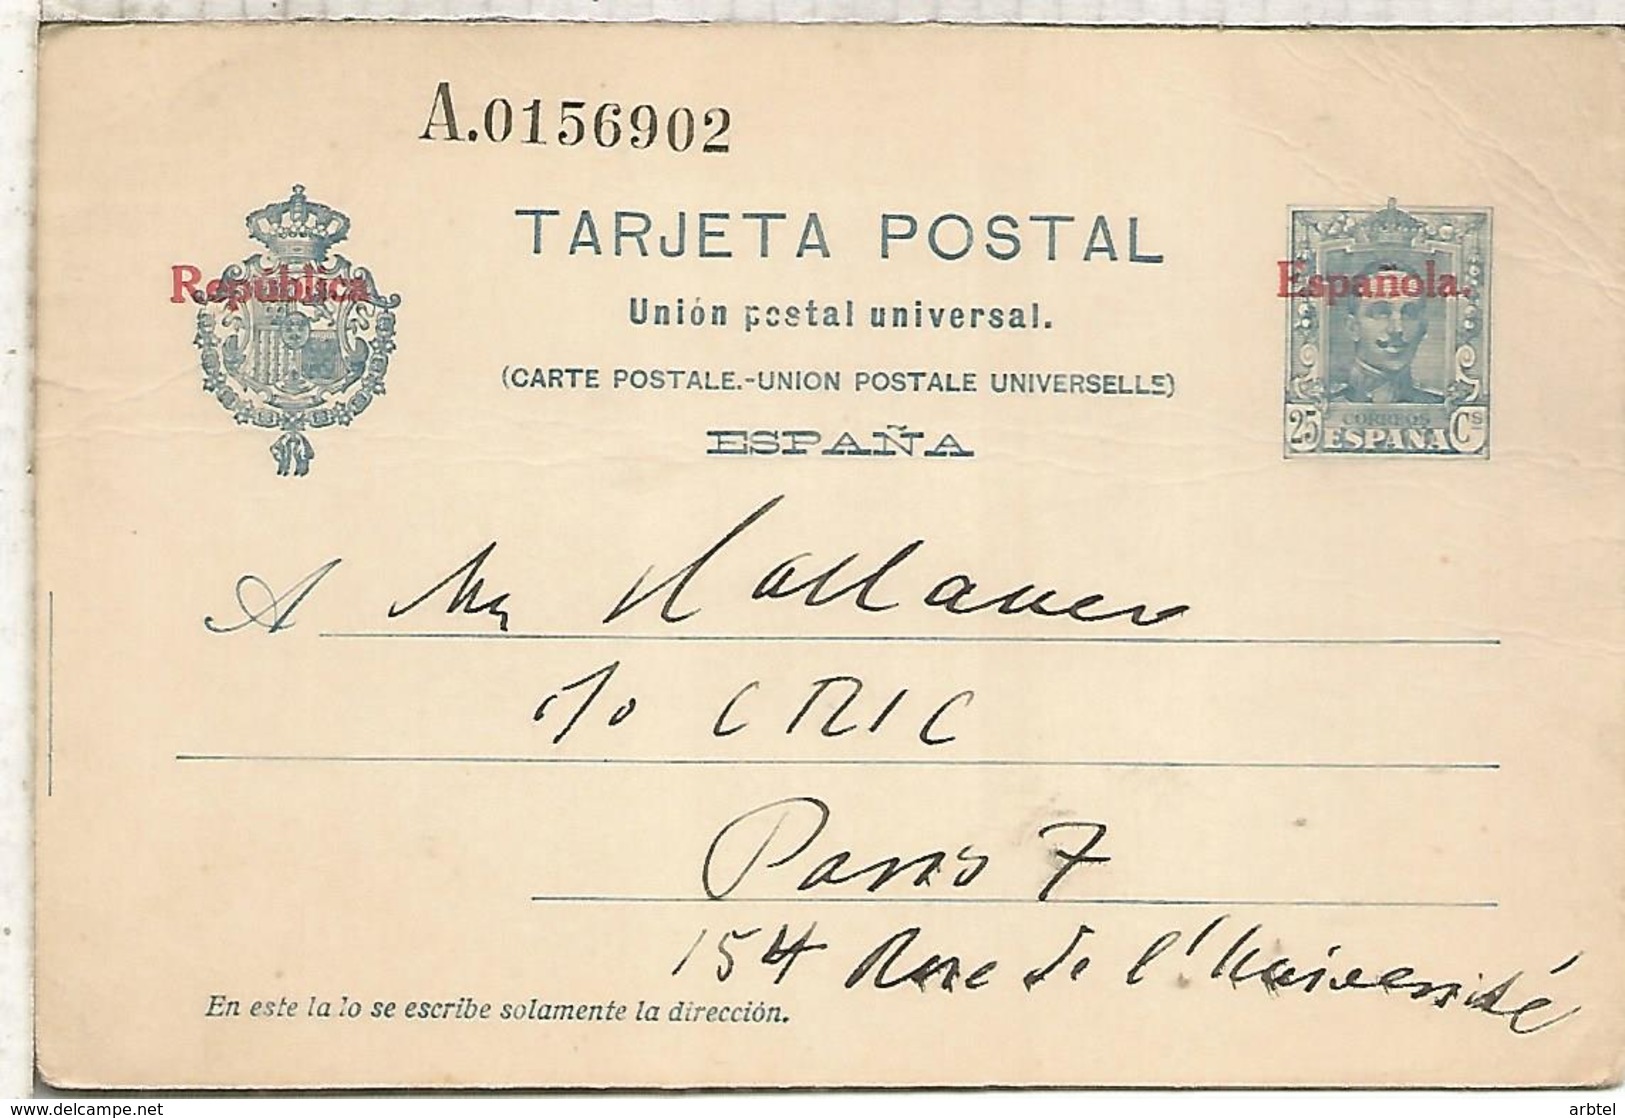 A.0156902
TARJETA POSTAL
República Española.
Unión postal universal.
(CARTE POSTALE.-UNION POSTALE UNIVERSELLE)
ESPAÑA
CORREOS
25 ESPAÑA Cs
A Mr Hollaner
c/o CRIC
Paris 7
154 Rue de l'Université
En este la lo se escribe solamente la dirección.
www.delcampe.net
arbtel